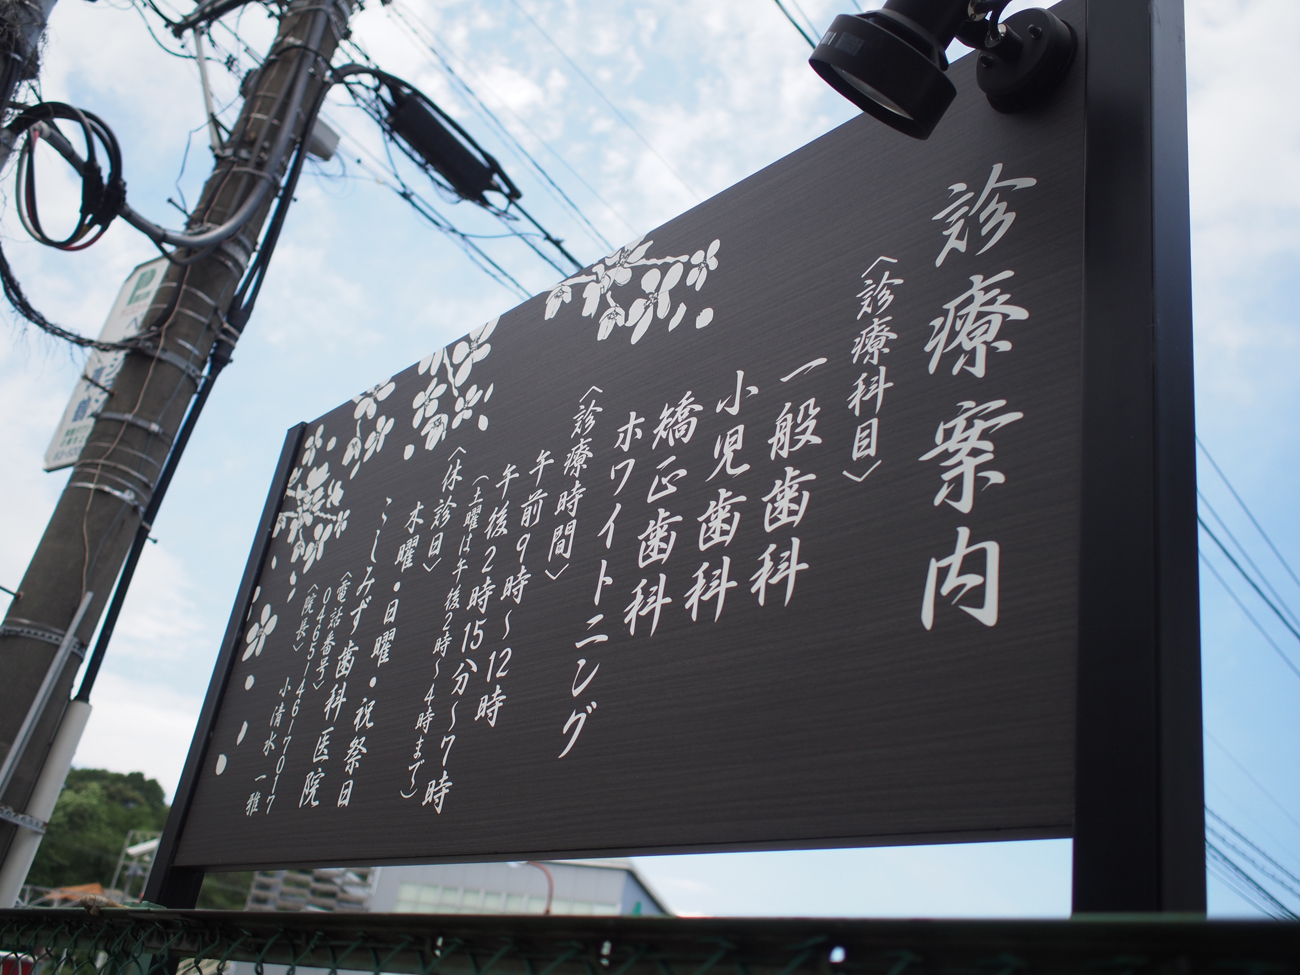 診療案内
〈診療科目〉
一般歯科
小児歯科
矯正歯科
ホワイトニング
〈診療時間〉
午前9時〜12時
午後2時15分〜7時
(土曜は午後2時〜4時まで)
〈休診日〉
木曜・日曜・祝祭日
こしみず歯科医院
〈電話番号〉
0465-46-7017
〈院長〉
小清水 一雅